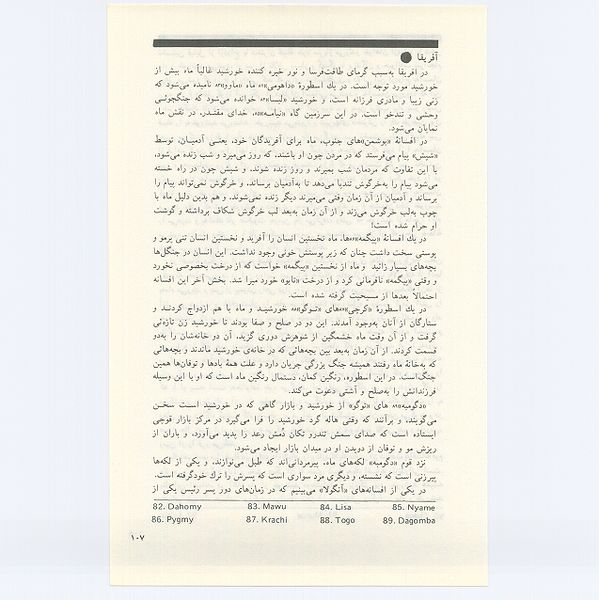 آفریقا
در آفریقا به‌سبب گرمای طاقت‌فرسا و نور خیره کننده خورشید غالباً ماه بیش از
خورشید مورد توجه است. در یك اسطورهٔ «داهومی»۸۲ ماه «ماوو»۸۳ نامیده می‌شود که
زنی زیبا و مادری فرزانه است، و خورشید «لیسا»۸۴ خوانده می‌شود که جنگجوئی
وحشی و تندخو است. در این سرزمین گاه «نیامه»۸۵، خدای مقتدر، در نقش ماه
نمایان می‌شود.
در افسانهٔ «بوشمن»های جنوب، ماه برای آفریدگان خود، یعنی آدمیان، توسط
«شپش» پیام می‌فرستد که در مردن چون او باشند، که روز می‌میرد و شب زنده می‌شود،
با این تفاوت که مردمان شب بمیرند و روز زنده شوند. و شپش چون در راه خسته
می‌شود پیام را به‌خرگوش تندپا می‌دهد تا به‌آدمیان برساند، و خرگوش نمی‌تواند پیام را
برساند و آدمیان از آن زمان وقتی می‌میرند دیگر زنده نمی‌شوند، و هم بدین دلیل ماه با
چوب به‌لب خرگوش می‌زند و از آن زمان به‌بعد لب خرگوش شکاف برداشته و گوشت
او حرام شده است!
در یك افسانهٔ «پیگمه»۸۶ها، ماه نخستین انسان را آفرید و نخستین انسان تنی پرمو و
پوستی سخت داشت چنان که زیر پوستش خونی وجود نداشت. این انسان در جنگل‌ها
بچه‌های بسیار زائید و ماه از نخستین «پیگمه» خواست که از درخت بخصوصی نخورد
و وقتی «پیگمه» نافرمانی کرد و از درخت «تابو» خورد میرا شد. بخش آخر این افسانه
احتمالا بعدها از مسیحیت گرفته شده است.
در یك اسطورهٔ «کرچی»۸۷های «توگو»۸۸ خورشید و ماه با هم ازدواج کردند و
ستارگان از آنان به‌وجود آمدند. این دو در صلح و صفا بودند تا خورشید زن تازه‌ئی
گرفت و از آن وقت ماه خشمگین از شوهرش دوری گزید. آن دو خانه‌شان را به‌دو
قسمت کردند. از آن زمان به‌بعد بین بچه‌هائی که در خانه‌ی خورشید ماندند و بچه‌هائی
که به‌خانهٔ ماه رفتند همیشه جنگ بزرگی جریان دارد و علت همهٔ بادها و توفان‌ها همین
جنگ‌است. در این اسطوره، رنگین کمان، دستمال رنگین ماه است که او با این وسیله
فرزندانش را به‌صلح و آشتی دعوت می‌کند.
«دگومبه»۸۹ های «توگو» از خورشید و بازار گاهی که در خورشید است سخن
می‌گویند، و برآنند که وقتی هاله گرد خورشید را فرا می‌گیرد در مرکز بازار قوچی
ایستاده است که صدای سمش تندرو تکان دُمش رعد را پدید می‌آورد، و باران از
ریزش مو و توفان از دویدن او در میدان بازار ایجاد می‌شود.
نزد قوم «دگومبه» لکه‌های ماه، پیرمردانی‌اند که طبل می‌نوازند، و یکی از لکه‌ها
پیرزنی است که نشسته، و دیگری مرد سواری است که پسرش را ترك خودگرفته است.
در یکی از افسانه‌های «آنگولا» می‌بینیم که در زمان‌های دور پسر رئیس یکی از
82. Dahomy 83. Mawu 84. Lisa 85. Nyame
86. Pygmy 87. Krachi 88. Togo 89. Dagomba
۱۰۷